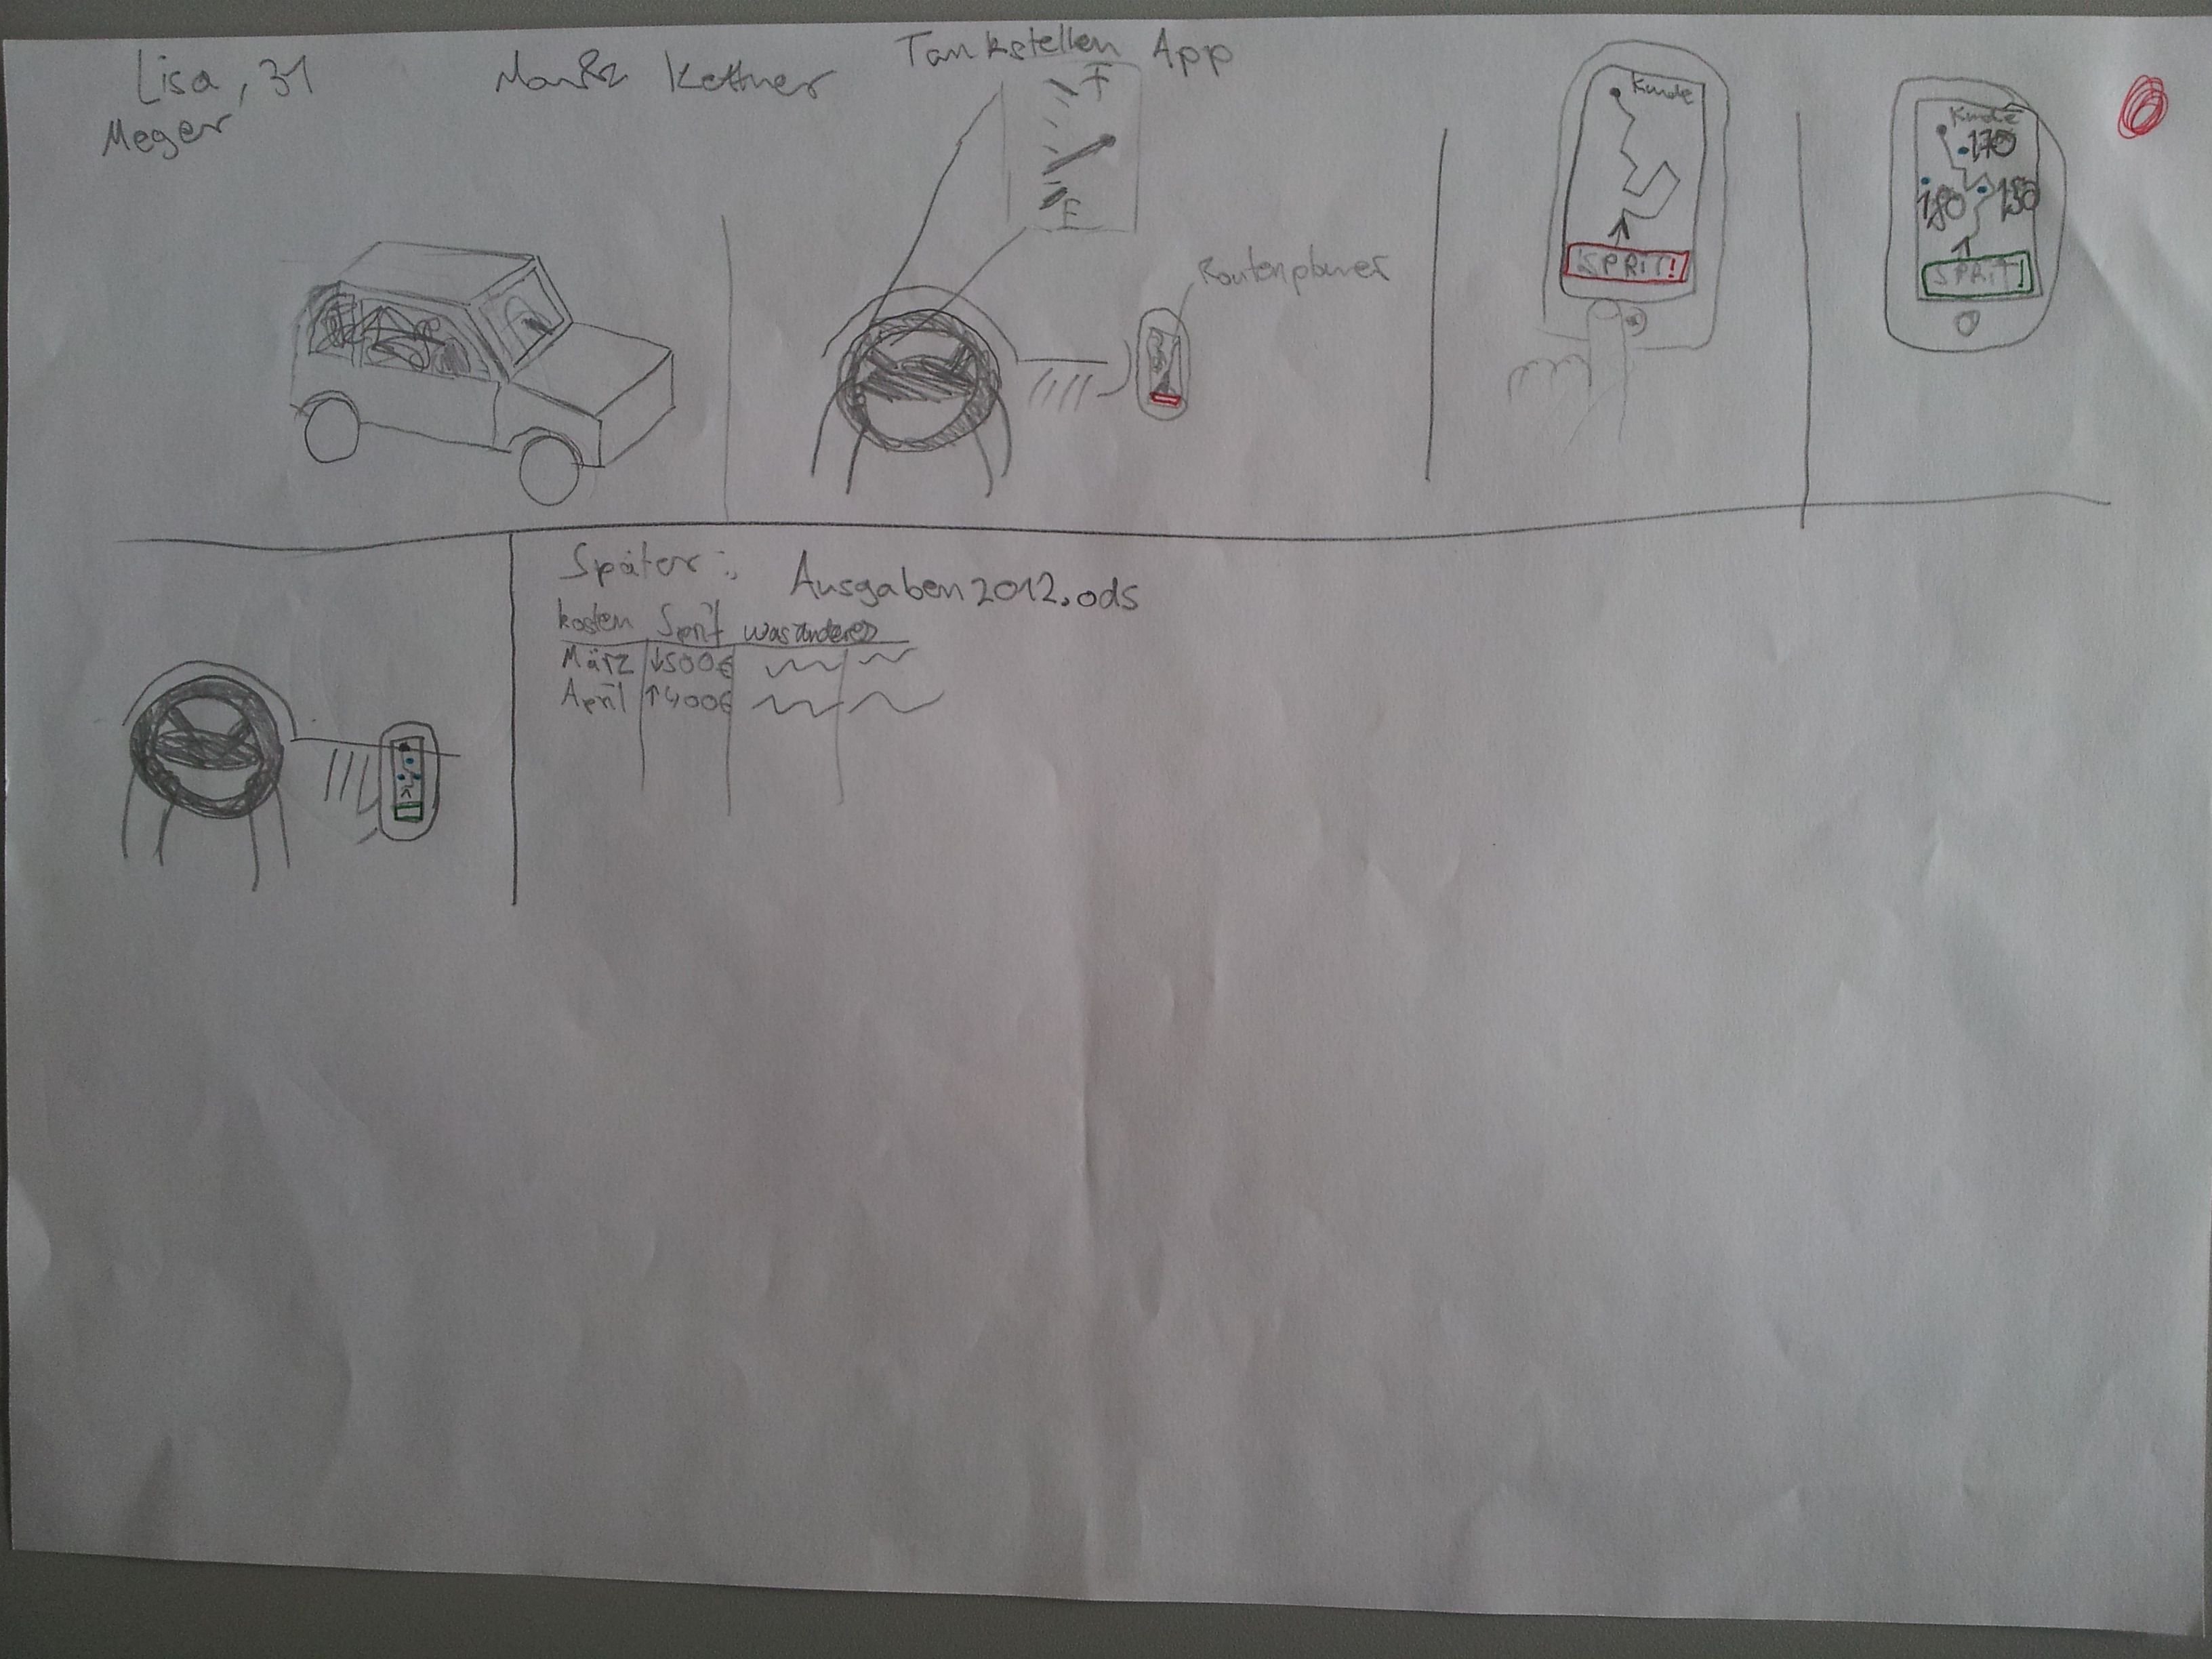 Lisa, 31
Meger
Moritz Kettner
Tankstellen App
F
E
Routenplaner
Kunde
SPRIT!
Kunde
170
180 150
SPRIT!
Später:
Ausgaben2012.ods
kosten Sprit was anderes
März ↓500€
April ↑400€